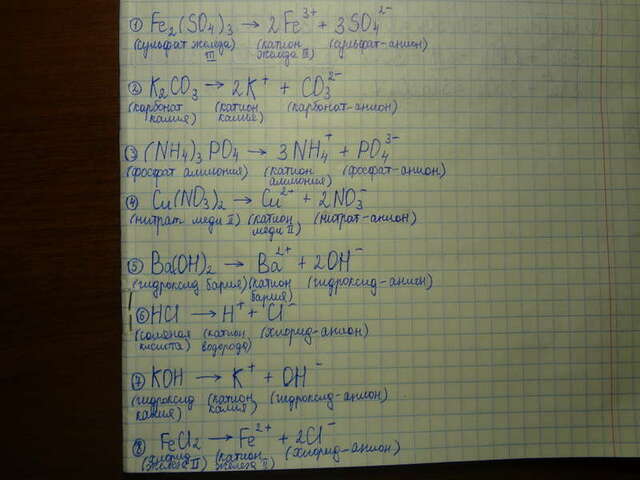 ① Fe₂(SO₄)₃ → 2Fe³⁺ + 3SO₄²⁻
(сульфат железа III) (катион железа III) (сульфат-анион)
② K₂CO₃ → 2K⁺ + CO₃²⁻
(карбонат калия) (катион калия) (карбонат-анион)
③ (NH₄)₃PO₄ → 3NH₄⁺ + PO₄³⁻
(фосфат аммония) (катион аммония) (фосфат-анион)
④ Cu(NO₃)₂ → Cu²⁺ + 2NO₃⁻
(нитрат меди II) (катион меди II) (нитрат-анион)
⑤ Ba(OH)₂ → Ba²⁺ + 2OH⁻
(гидроксид бария) (катион бария) (гидроксид-анион)
⑥ HCl → H⁺ + Cl⁻
(соляная кислота) (катион водорода) (хлорид-анион)
⑦ KOH → K⁺ + OH⁻
(гидроксид калия) (катион калия) (гидроксид-анион)
⑧ FeCl₂ → Fe²⁺ + 2Cl⁻
(хлорид железа II) (катион железа II) (хлорид-анион)